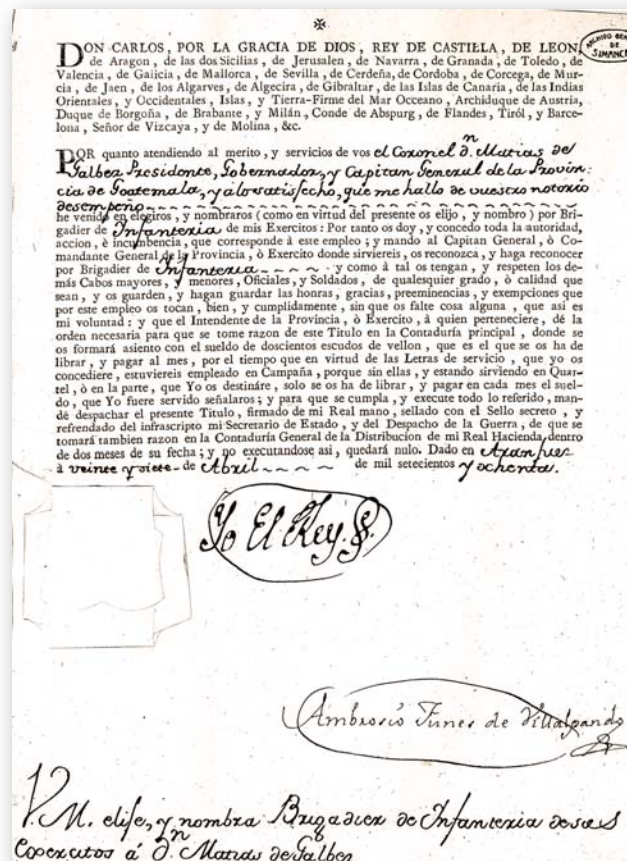 ✠
ARCHIVO GEN
DE
SIMANCA
DON CARLOS, POR LA GRACIA DE DIOS, REY DE CASTILLA, DE LEON,
de Aragon, de las dos Sicilias, de Jerusalen, de Navarra, de Granada, de Toledo, de
Valencia, de Galicia, de Mallorca, de Sevilla, de Cerdeña, de Cordoba, de Corcega, de Mur-
cia, de Jaen, de los Algarves, de Algecira, de Gibraltar, de las Islas de Canaria, de las Indias
Orientales, y Occidentales, Islas, y Tierra-Firme del Mar Occeano, Archiduque de Austria,
Duque de Borgoña, de Brabante, y Milán, Conde de Abspurg, de Flandes, Tiról, y Barce-
lona, Señor de Vizcaya, y de Molina, &c.
POR quanto atendiendo al merito, y servicios de vos el Coronel d.n Matias de
Galbez Presidente, Gobernador, y Capitan General de la Provin:
cia de Goatemala, y a lo satisfecho, que me hallo de vuestro notorio
desempeño
he venido en elegiros, y nombraros (como en virtud del presente os elijo, y nombro) por Bri-
gadier de Infanteria de mis Exercitos: Por tanto os doy, y concedo toda la autoridad,
accion, è incumbencia, que corresponde à este empleo; y mando al Capitan General, ò Co-
mandante General de la Provincia, ò Exercito donde sirviereis, os reconozca, y haga reconocer
por Brigadier de Infanteria y como à tal os tengan, y respeten los de-
más Cabos mayores, y menores, Oficiales, y Soldados, de qualesquier grado, ò calidad que
sean, y os guarden, y hagan guardar las honras, gracias, preeminencias, y exempciones que
por este empleo os tocan, bien, y cumplidamente, sin que os falte cosa alguna, que asi es
mi voluntad: y que el Intendente de la Provincia, ò Exercito, à quien perteneciere, dé la
orden necesaria para que se tome razon de este Titulo en la Contaduría principal, donde se
os formará asiento con el sueldo de doscientos escudos de vellon, que es el que se os ha de
librar, y pagar al mes, por el tiempo que en virtud de las Letras de servicio, que yo os
concediere, estuviereis empleado en Campaña, porque sin ellas, y estando sirviendo en Quar-
tel, ò en la parte, que Yo os destináre, solo se os ha de librar, y pagar en cada mes el suel-
do, que Yo fuere servido señalaros; y para que se cumpla, y execute todo lo referido, man-
dé despachar el presente Titulo, firmado de mi Real mano, sellado con el Sello secreto, y
refrendado del infrascripto mi Secretario de Estado, y del Despacho de la Guerra, de que se
tomará tambien razon en la Contaduría General de la Distribucion de mi Real Hacienda, dentro
de dos meses de su fecha; y no executandose asi, quedará nulo. Dado en Aranjuez
à veinte y siete de Abril de mil setecientos y ochenta.
Yo El Rey
Ambrosio Funes de Villalpando
V. M. elije, y nombra Brigadier de Infanteria de sus
Exercitos á d.n Matias de Galbez